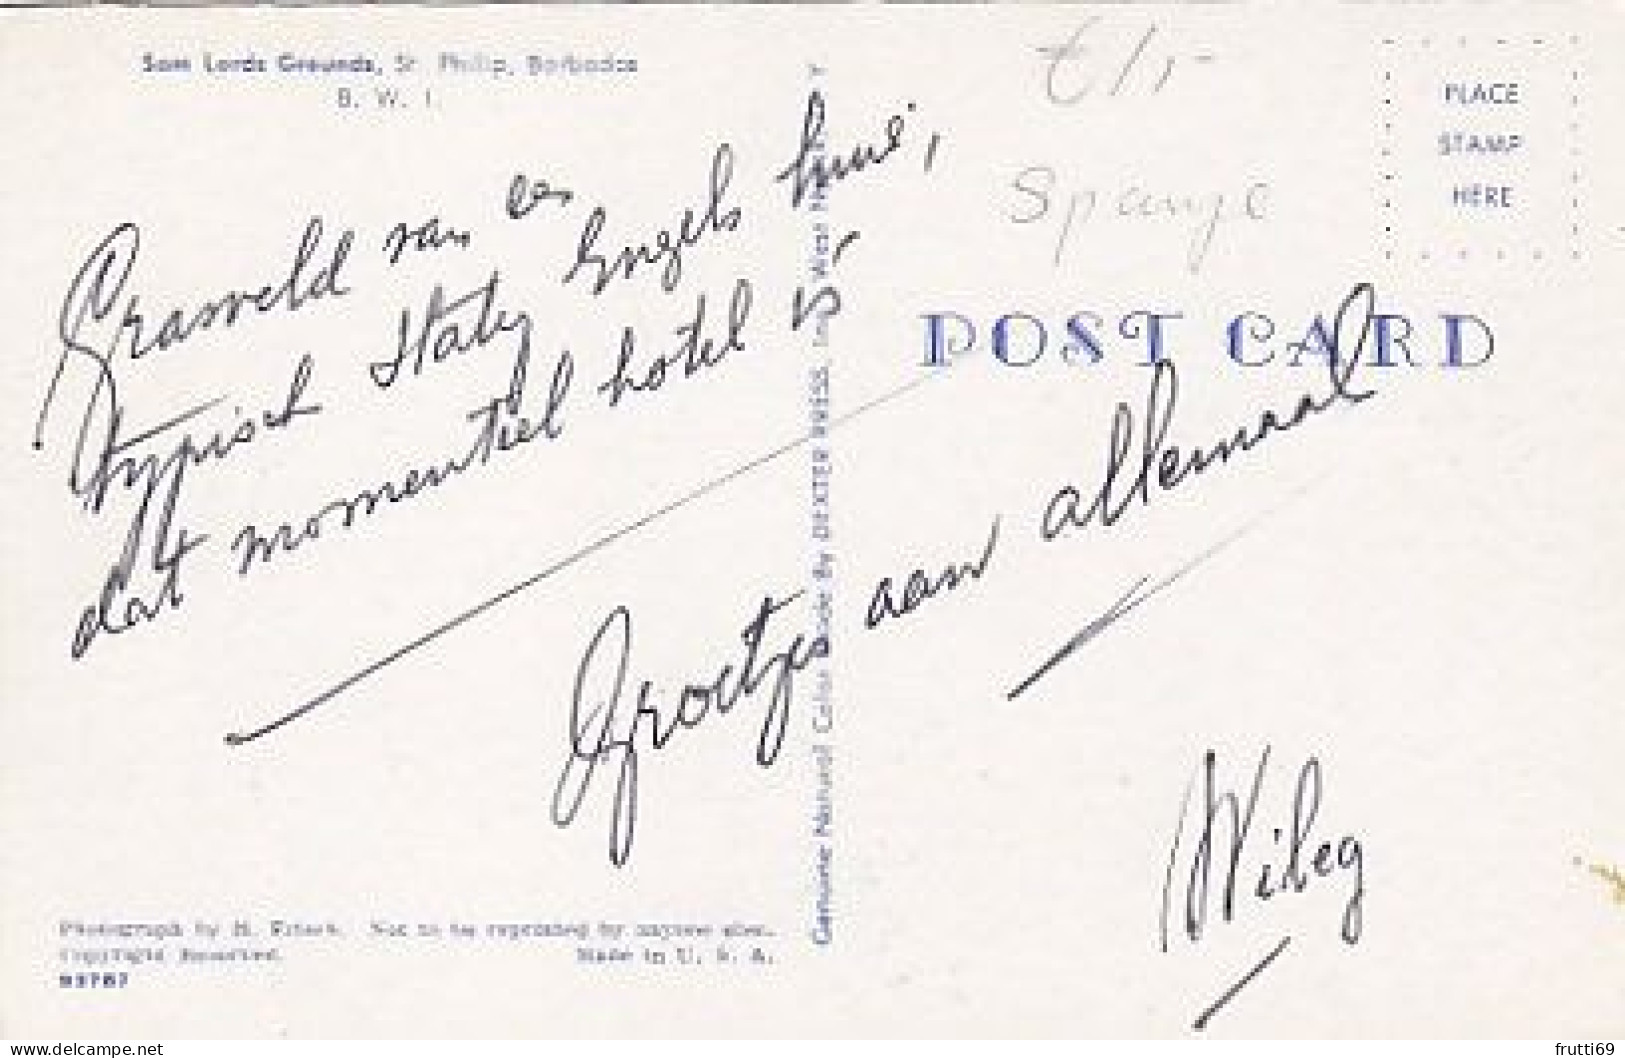 Sam Lords Grounds, St. Philip, Barbados
B. W. I.
Grasveld van een
typisch Engels huis,
dat momenteel hotel is
Groetjes aan allemaal
€ 1,-
PLACE
STAMP
HERE
POST CARD
Genuine Natural Color Made By DEXTER PRESS, Inc., West Nyack, N.Y.
Photograph by H. Not to be reprinted by anyone else.
Copyright Reserved. Made in U. S. A.
93787
frutti69
https://www.delcampe.net/